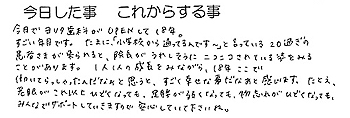 今日した事 これからする事
今月でヨリタ歯科がOPENして18年。
すごい年月です。たまに、「小学校から通ってるんです~」と言っている20過ぎの
患者さまが来られると、院長がうれしそうにニコニコされている姿をみる
ことがあります。1人1人の成長をみながら、18年ここで
働いてらっしゃったんだなぁと思うと、すごく幸せな事だなぁと感じます。たとえ、
花眼がこれ以上ひどくなっても、足腰が弱くなっても、物忘れがひどくなっても、
みんなでサポートしていきますので安心していて下さいね。